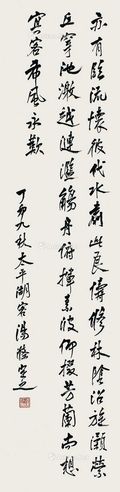 亦有臨流懷彼伐木肅此良儔修林陰沼旋瀨縈
丘穿池激湍連濫觴舟俯揮素波仰掇芳蘭尚想
賓客希風永歎
丁卯九秋太平湖客湯